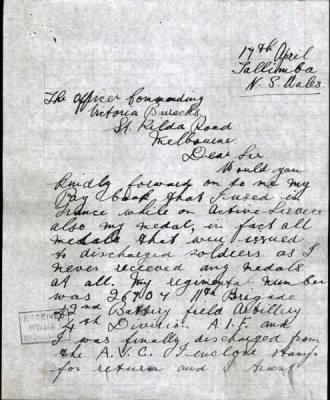 17th April
Tallimba
N. S. Wales
The Officer Commanding
Victoria Barracks,
St. Kilda Road
Melbourne
Dear Sir
Would you
kindly forward on to me my
Pay book, that I used in
France while on Active Service
also my medal, in fact all
medals that were issued
to discharged soldiers as I
never recieved any medals
at all. My regimental number
was 26707 11th Brigade
42nd Battery field Artillery
4th Division A.I.F. and
I was finally discharged from
the A.V.C. I enclose stamps
for return and I trust
RECEIVED